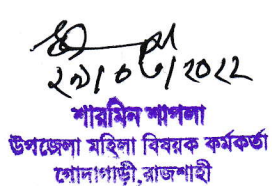 ২৯/০৩/২০২২
শারমিন শাপলা
উপজেলা মহিলা বিষয়ক কর্মকর্তা
গোদাগাড়ী,রাজশাহী